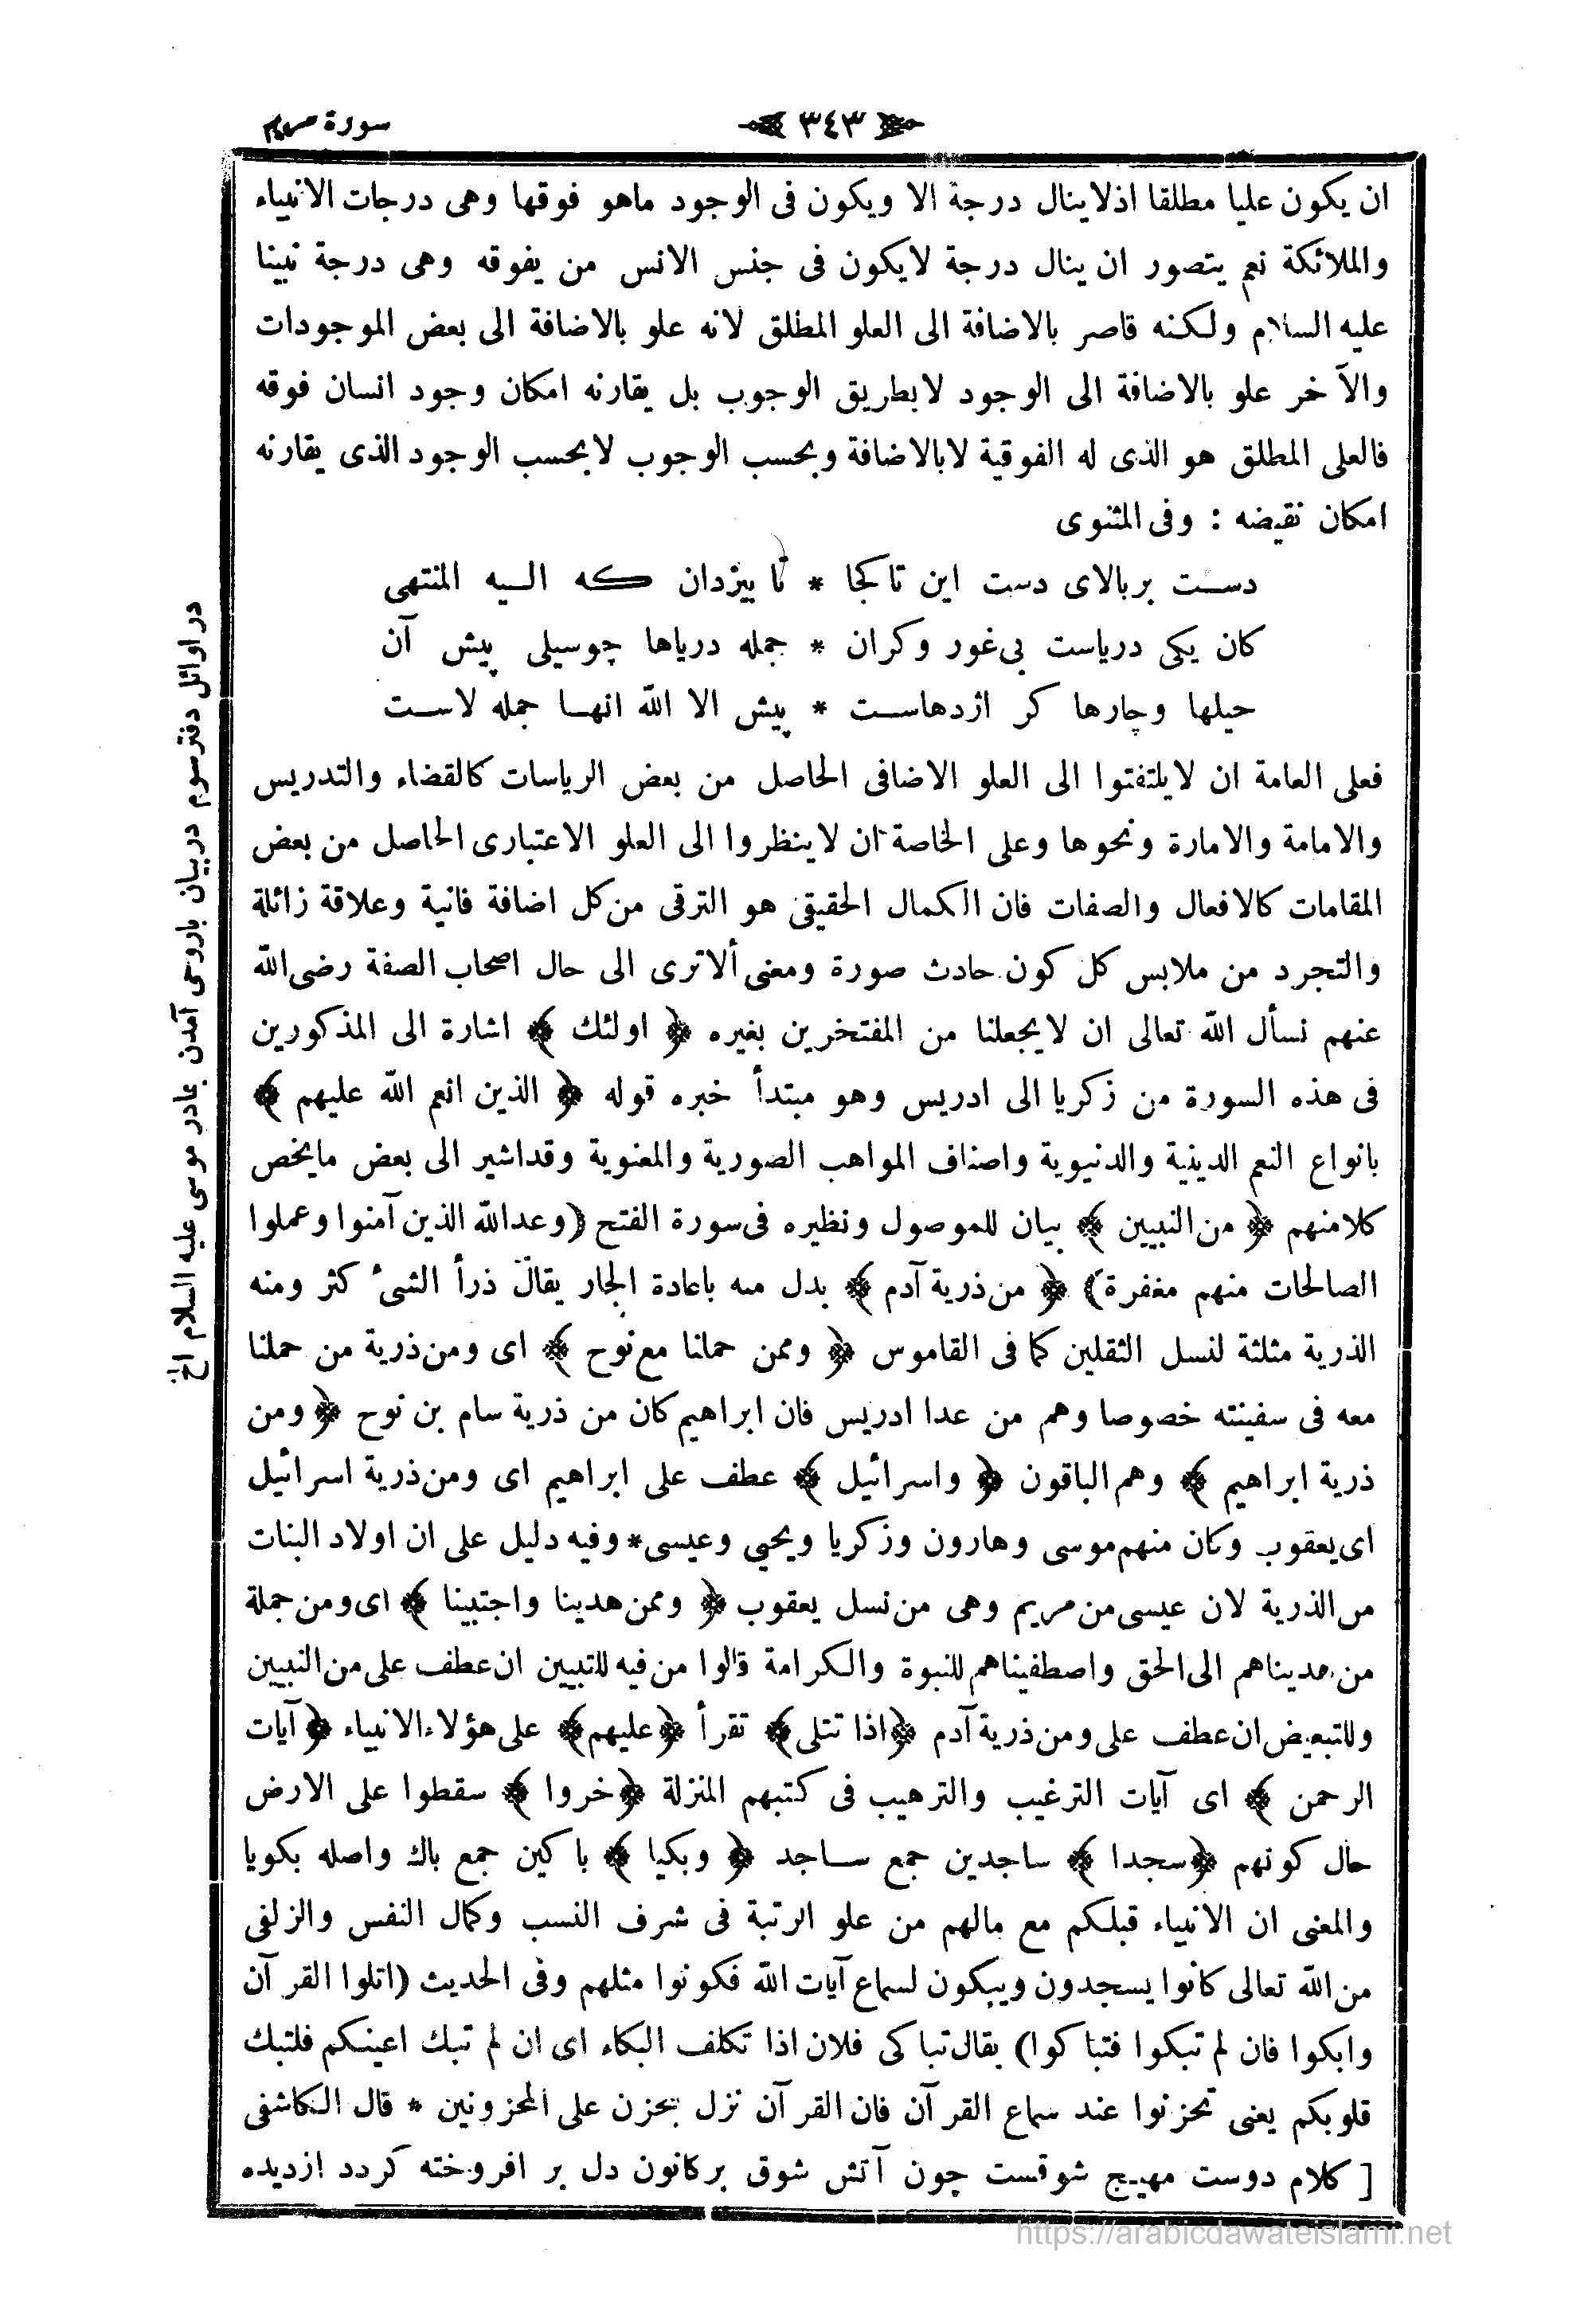 سورة مريم
﴿ ٣٤٣ ﴾
ان يكون عليا مطلقا اذلاينال درجة الا ويكون فى الوجود ماهو فوقها وهى درجات الانبياء
والملائكة نعم يتصور ان ينال درجة لايكون فى جنس الانس من يفوقه وهى درجة نبينا
عليه السلام ولكنه قاصر بالاضافة الى العلو المطلق لانه علو بالاضافة الى بعض الموجودات
والآخر علو بالاضافة الى الوجود لابطريق الوجوب بل يقارنه امكان وجود انسان فوقه
فالعلى المطلق هو الذى له الفوقية لابالاضافة وبحسب الوجوب لابحسب الوجود الذى يقارنه
امكان نقيضه : وفى المثنوى
دست بربالاى دست اين تاكجا * تا بيزدان كه اليه المنتهى
كان يكى درياست بى غور وكران * جمله درياها چوسيلى پيش آن
حيلها وچارها كر اژدهاست * پيش الا الله انها جمله لاست
فعلى العامة ان لايلتفتوا الى العلو الاضافى الحاصل من بعض الرياسات كالقضاء والتدريس
والامامة والامارة ونحوها وعلى الخاصة ان لاينظروا الى العلو الاعتبارى الحاصل من بعض
المقامات كالافعال والصفات فان الكمال الحقيقى هو الترقى من كل اضافة فانية وعلاقة زائلة
والتجرد من ملابس كل كون حادث صورة ومعنى ألاترى الى حال اصحاب الصفة رضى الله
عنهم نسأل الله تعالى ان لايجعلنا من المفتخرين بغيره ﴿ اولئك ﴾ اشارة الى المذكورين
فى هذه السورة من زكريا الى ادريس وهو مبتدأ خبره قوله ﴿ الذين انعم الله عليهم ﴾
بانواع النعم الدينية والدنيوية واصناف المواهب الصورية والمعنوية وقداشير الى بعض مايخص
كلامنهم ﴿ من النبيين ﴾ بيان للموصول ونظيره فى سورة الفتح (وعدالله الذين آمنوا وعملوا
الصالحات منهم مغفرة) ﴿ من ذرية آدم ﴾ بدل منه باعادة الجار يقال ذرأ الشئ كثر ومنه
الذرية مثلثة لنسل الثقلين كما فى القاموس ﴿ وممن حملنا مع نوح ﴾ اى ومن ذرية من حملنا
معه فى سفينته خصوصا وهم من عدا ادريس فان ابراهيم كان من ذرية سام بن نوح ﴿ ومن
ذرية ابراهيم ﴾ وهم الباقون ﴿ واسرائيل ﴾ عطف على ابراهيم اى ومن ذرية اسرائيل
اى يعقوب وكان منهم موسى وهارون وزكريا ويحيى وعيسى * وفيه دليل على ان اولاد البنات
من الذرية لان عيسى من مريم وهى من نسل يعقوب ﴿ وممن هدينا واجتبينا ﴾ اى ومن جملة
من هديناهم الى الحق واصطفيناهم للنبوة والكرامة قالوا من فيه للتبيين ان عطف على من النبيين
وللتبعيض ان عطف على ومن ذرية آدم ﴿ اذا تتلى ﴾ تقرأ ﴿ عليهم ﴾ على هؤلاء الانبياء ﴿ آيات
الرحمن ﴾ اى آيات الترغيب والترهيب فى كتبهم المنزلة ﴿ خروا ﴾ سقطوا على الارض
حال كونهم ﴿ سجدا ﴾ ساجدين جمع ساجد ﴿ وبكيا ﴾ باكين جمع باك واصله بكويا
والمعنى ان الانبياء قبلكم مع مالهم من علو الرتبة فى شرف النسب وكمال النفس والزلفى
من الله تعالى كانوا يسجدون ويبكون لسماع آيات الله فكونوا مثلهم وفى الحديث (اتلوا القرآن
وابكوا فان لم تبكوا فتباكوا) يقال تباكى فلان اذا تكلف البكاء اى ان لم تبك اعينكم فلتبك
قلوبكم يعنى تحزنوا عند سماع القرآن فان القرآن نزل بحزن على المحزونين * قال الكاشفى
[ كلام دوست مهيج شوقست چون آتش شوق بركانون دل بر افروخته كردد ازديده
در اوائل دفتر سوم در بيان باروحى آمدن بمادر موسى عليه السلام الخ
https://arabicdawateislami.net